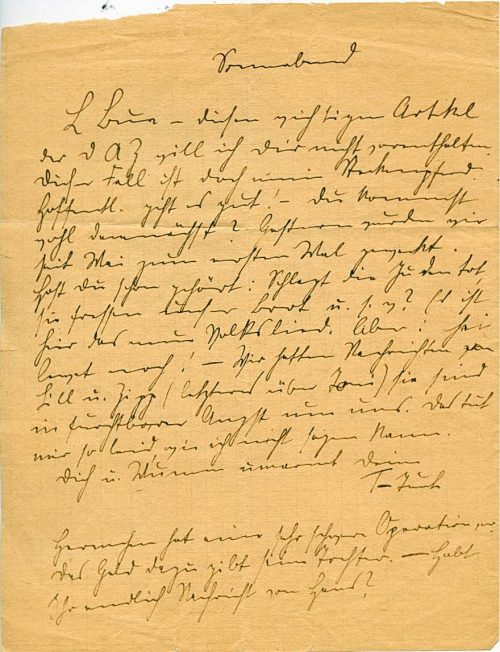 Sonnabend
L Bur – diesen wichtigen Artikel
der DAZ will ich Dir nicht vorenthalten.
Dieser Fall ist doch mein Steckenpferd.
Hoffentl. geht es gut! – Du kommst
wohl demnächst? Gestern wurden wir
seit Mai zum ersten Mal geweckt.
Hast Du schon gehört: Schlagt die Juden tot,
sie fressen unser Brot u. s. w? Es ist
hier das neue Volkslied. Aber:
noch! – Wir hatten Nachrichten von
Lill u. Zipp (letztere über Toni) sie sind
in furchtbarer Angst um uns. Das tut
mir so leid, wie ich nicht sagen kann.
Dich u. umarmt Deine
T–
Herrmchen hat eine sehr schwere Operation
das Geld dazu gibt seine Tochter. – Habt
Ihr endlich Nachricht von Hans?